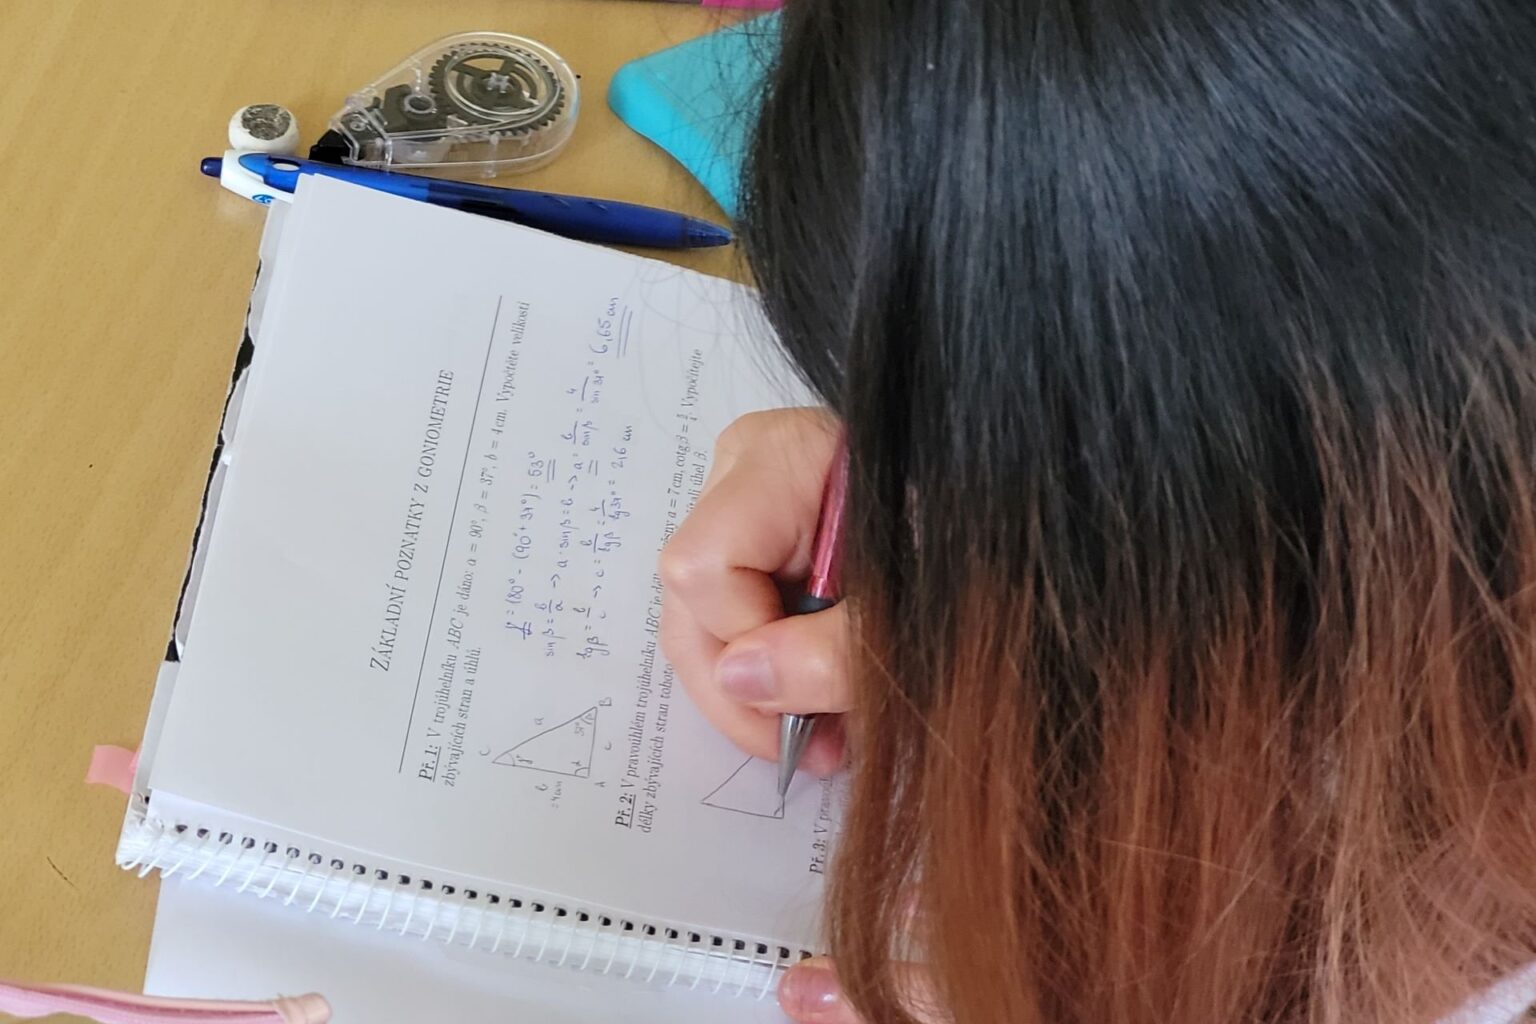 ZÁKLADNÍ POZNATKY Z GONIOMETRIE
Př. 1: V trojúhelníku ABC je dáno: α = 90°, β = 37°, b = 4 cm. Vypočtěte velikosti
zbývajících stran a úhlů.
γ = 180° - (90° + 37°) = 53°
sin β = b/a -> a · sin β = b -> a = b/sin β = 4/sin 37° = 6,65 cm
tg β = b/c -> c = b/tg β = 4/tg 37° = 2,6 cm
C
γ
a
b
= 4 cm
α
37°
β
A
c
B
Př. 2: V pravoúhlém trojúhelníku ABC je a = 7 cm, cotg β = Vypočítejte
délky zbývajících stran tohoto úhel β.
Př. 3: V